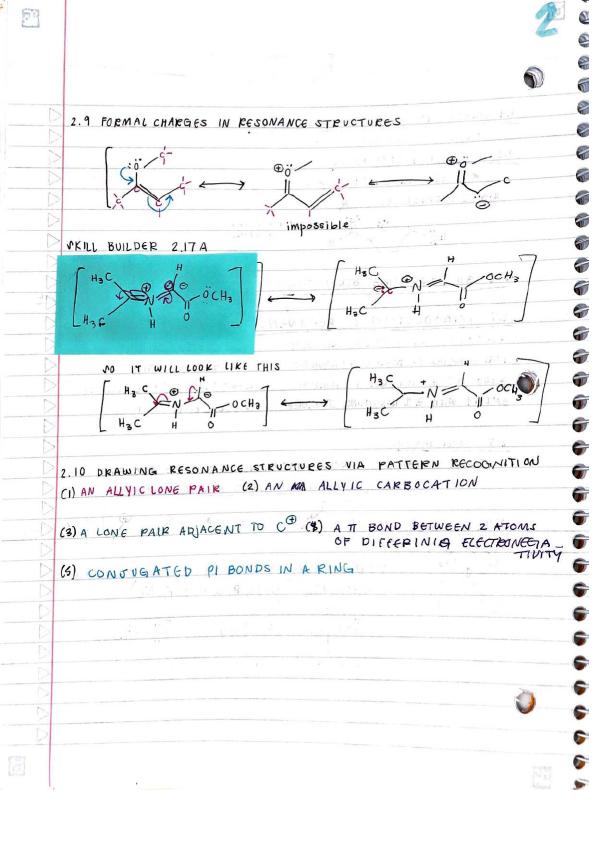 2
2.9 FORMAL CHARGES IN RESONANCE STRUCTURES
impossible
SKILL BUILDER 2.17A
H₃C H ⊕ ⊖ N ÖCH₃ H₃C H O
H₃C H ⊕ N OCH₃ H₃C H O
SO IT WILL LOOK LIKE THIS
H₃C ⊕ H ⊖ N OCH₃ H₃C H O
H₃C H + N OCH₃ H₃C H O
2.10 DRAWING RESONANCE STRUCTURES VIA PATTERN RECOGNITION
(1) AN ALLYIC LONE PAIR (2) AN ALLYIC CARBOCATION
(3) A LONE PAIR ADJACENT TO C⊕ (4) A π BOND BETWEEN 2 ATOMS
OF DIFFERINIG ELECTRONEGA-
TIVITY
(5) CONJUGATED PI BONDS IN A RING